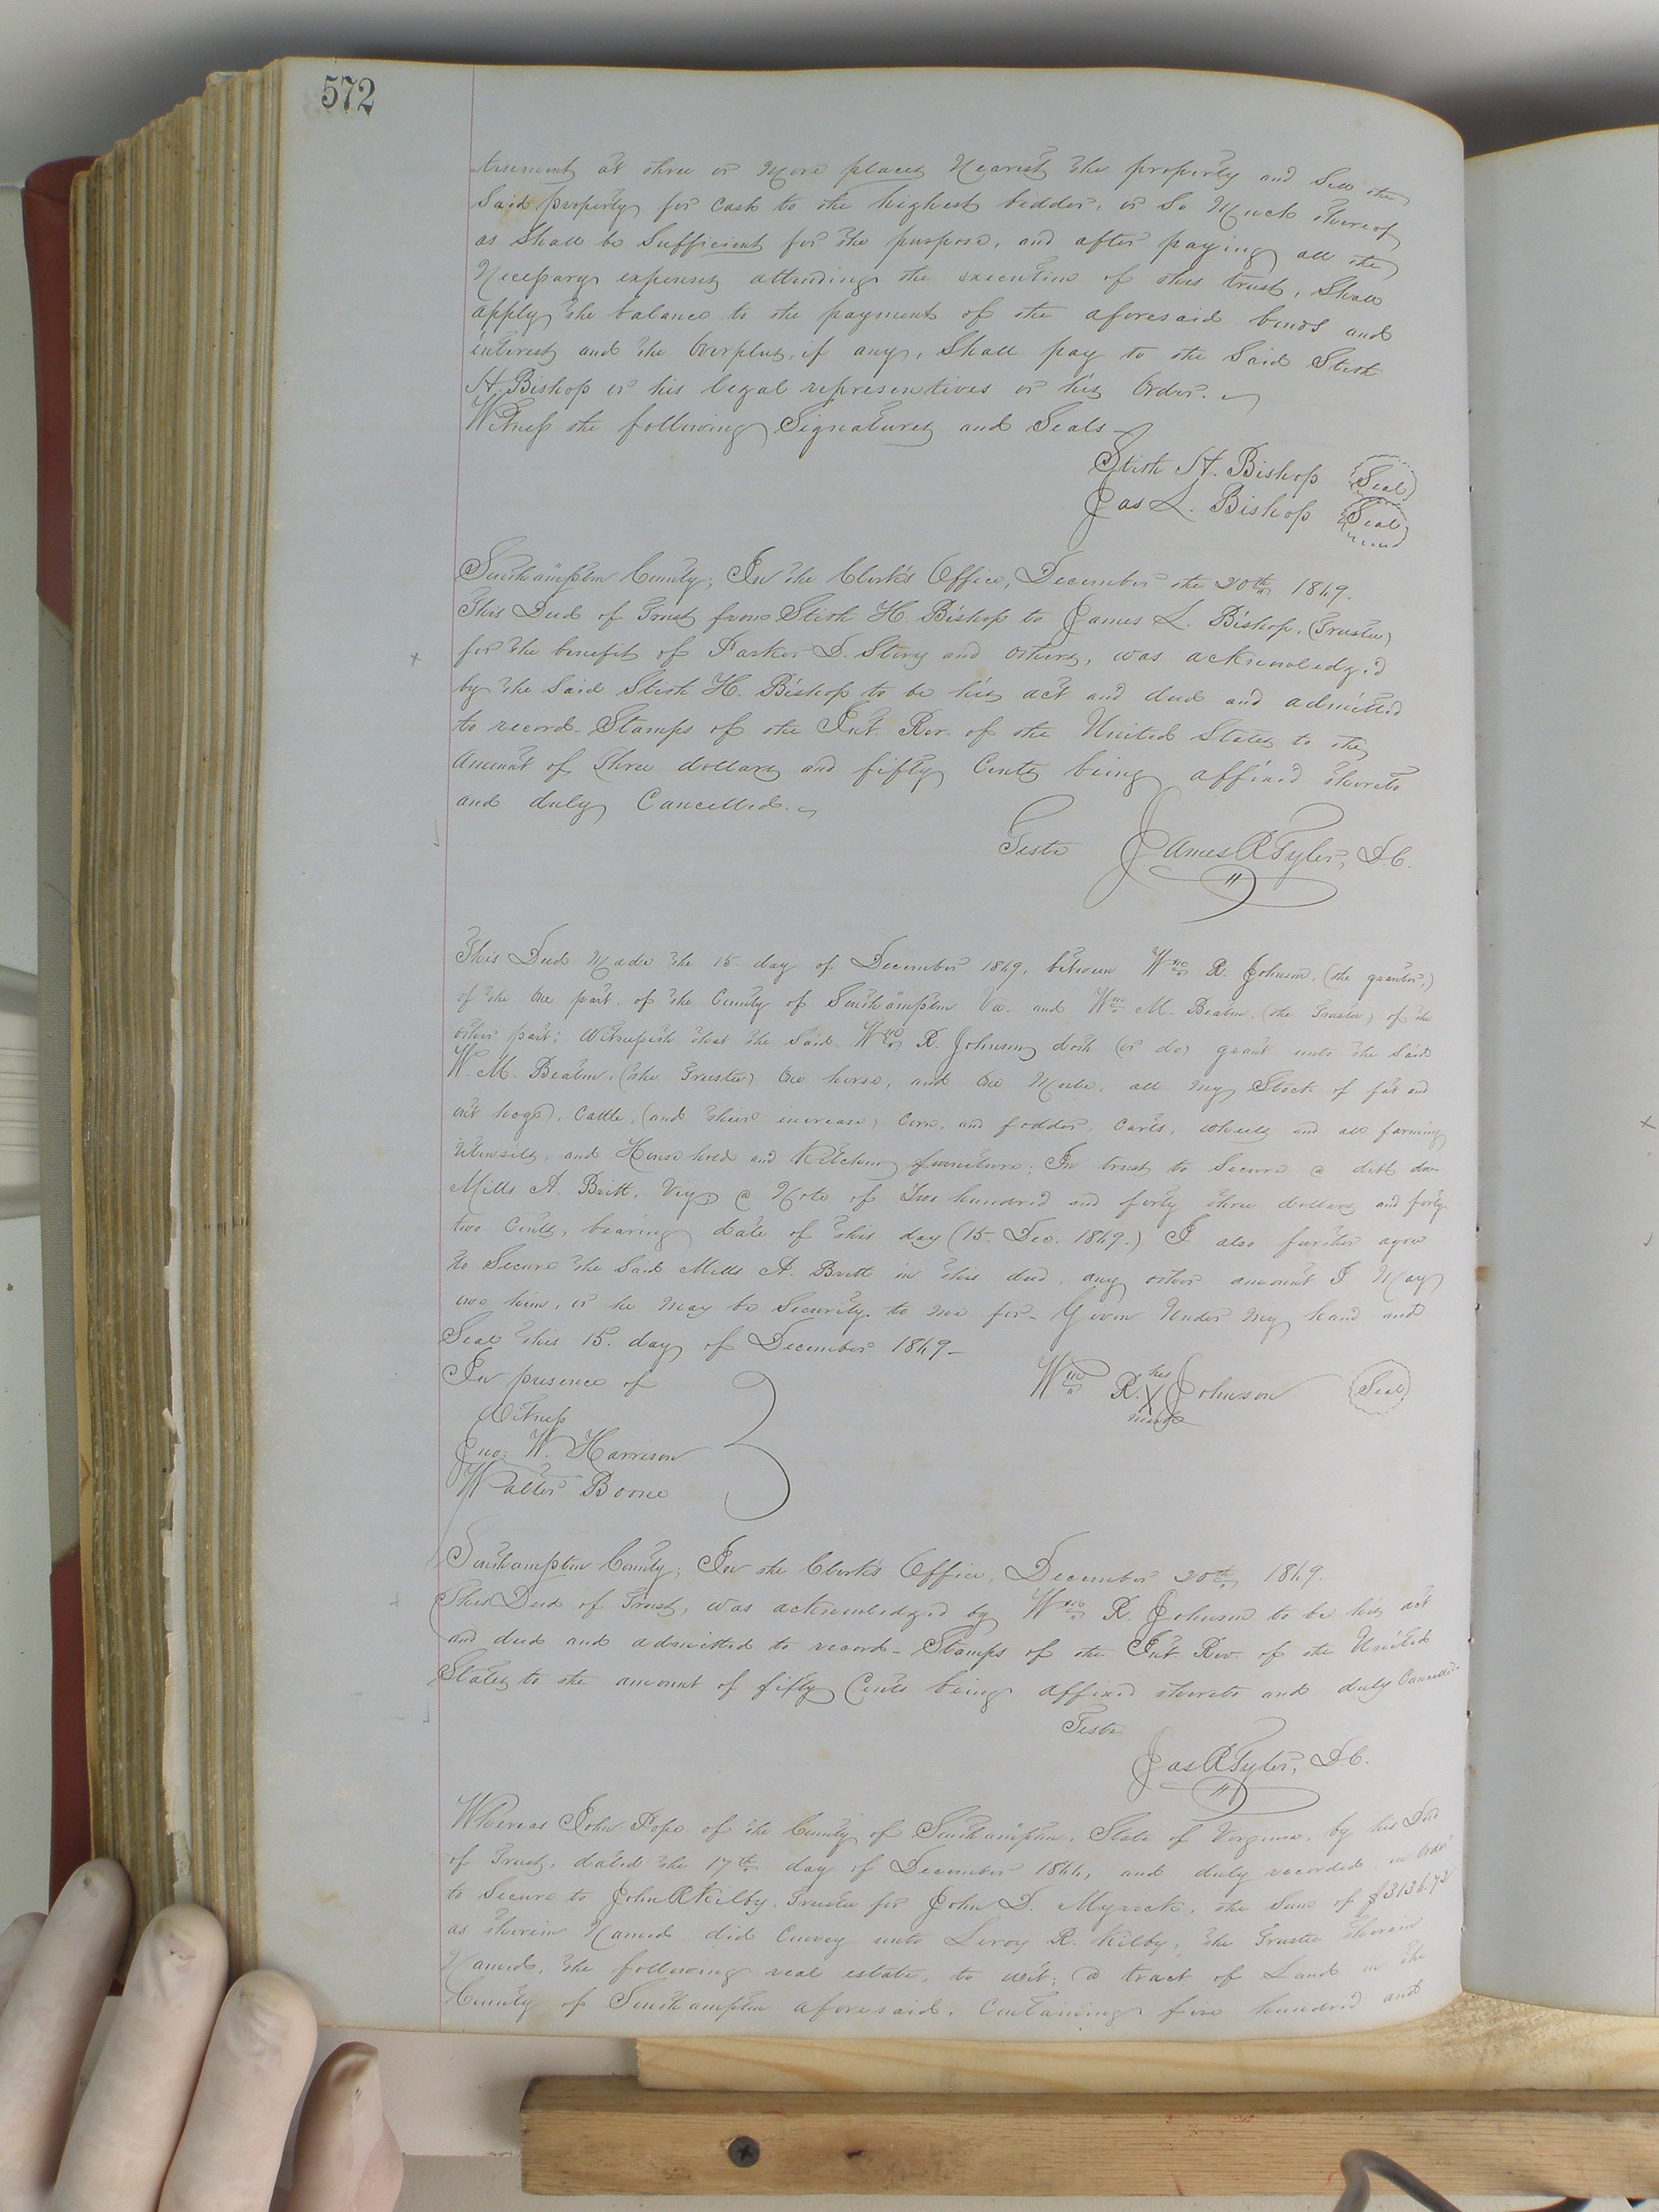 572
tisement at three or more places nearest the property and sell the
Said property for Cash to the highest bidder, or So Much thereof
as Shall be Sufficient for the purpose, and after paying all the
Necessary expenses attending the execution of this trust, Shall
apply the balance to the payment of the aforesaid bonds and
interest and the Overplus, if any, Shall pay to the Said Stith
H. Bishop or his legal representives or his Order.
Witness the following Signatures and Seals
Stith H. Bishop Seal
Jas L. Bishop Seal
Southampton County; In the Clerk's Office, December the 20th 1869.
This Deed of Trust from Stith H. Bishop to James L. Bishop, (Trustee)
for the benefit of Parker D. Story and others, was acknowledged
by the Said Stith H. Bishop to be his act and deed and admitted
to record. Stamps of the Int. Rev. of the United States to the
Amount of Three dollars and fifty Cents being affixed thereto
and duly Cancelled.
Teste James R Tyler, D.C.
This Deed Made the 15. day of December 1869, between Wm R. Johnson, (the grantor,)
of the One part, of the County of Southampton Va. and Wm M. Beaton, (the Trustee) of the
other part; Witnesseth that the Said Wm R. Johnson doth (or do) grant unto the Said
W. M. Beaton, (the Trustee) One horse, and One Mule, all my Stock of fat and
out hogs, Cattle, (and their increase) Corn, and fodder, Carts, wheels and all farming
Utensils, and House hold and Kitchen furniture; In trust to Secure a debt due
Mills A. Britt, Viz; a Note of Two hundred and forty three dollars and forty
two Cents, bearing date of this day (15. Dec. 1869.) I also further agree
to Secure the Said Mills A. Britt in this deed, any other amount I May
owe him, or he may be Security to me for. Given Under my hand and
Seal this 15. day of December 1869.
In presence of Wm R. his X mark Johnson Seal
Witness
Jno. W. Harrison
Walter Boone
Southampton County; In the Clerk's Office, December 20th 1869.
This Deed of Trust, was acknowledged by Wm R. Johnson to be his act
and deed and admitted to record. Stamps of the Int. Rev. of the United
States to the amount of fifty Cents being affixed thereto and duly Cancelled.
Teste
Jas R Tyler, D.C.
Whereas John Pope of the County of Southampton, State of Virginia, by his Deed
of Trust, dated the 17th day of December 1866, and duly recorded in Order
to Secure to John R Kilby, Trustee for John D. Myrick, the Sum of
as therein Named did Convey unto Leroy R. Kilby, the Trustee therein
Named, the following real estate, to wit; a tract of Land in the
County of Southampton aforesaid, Containing five hundred and